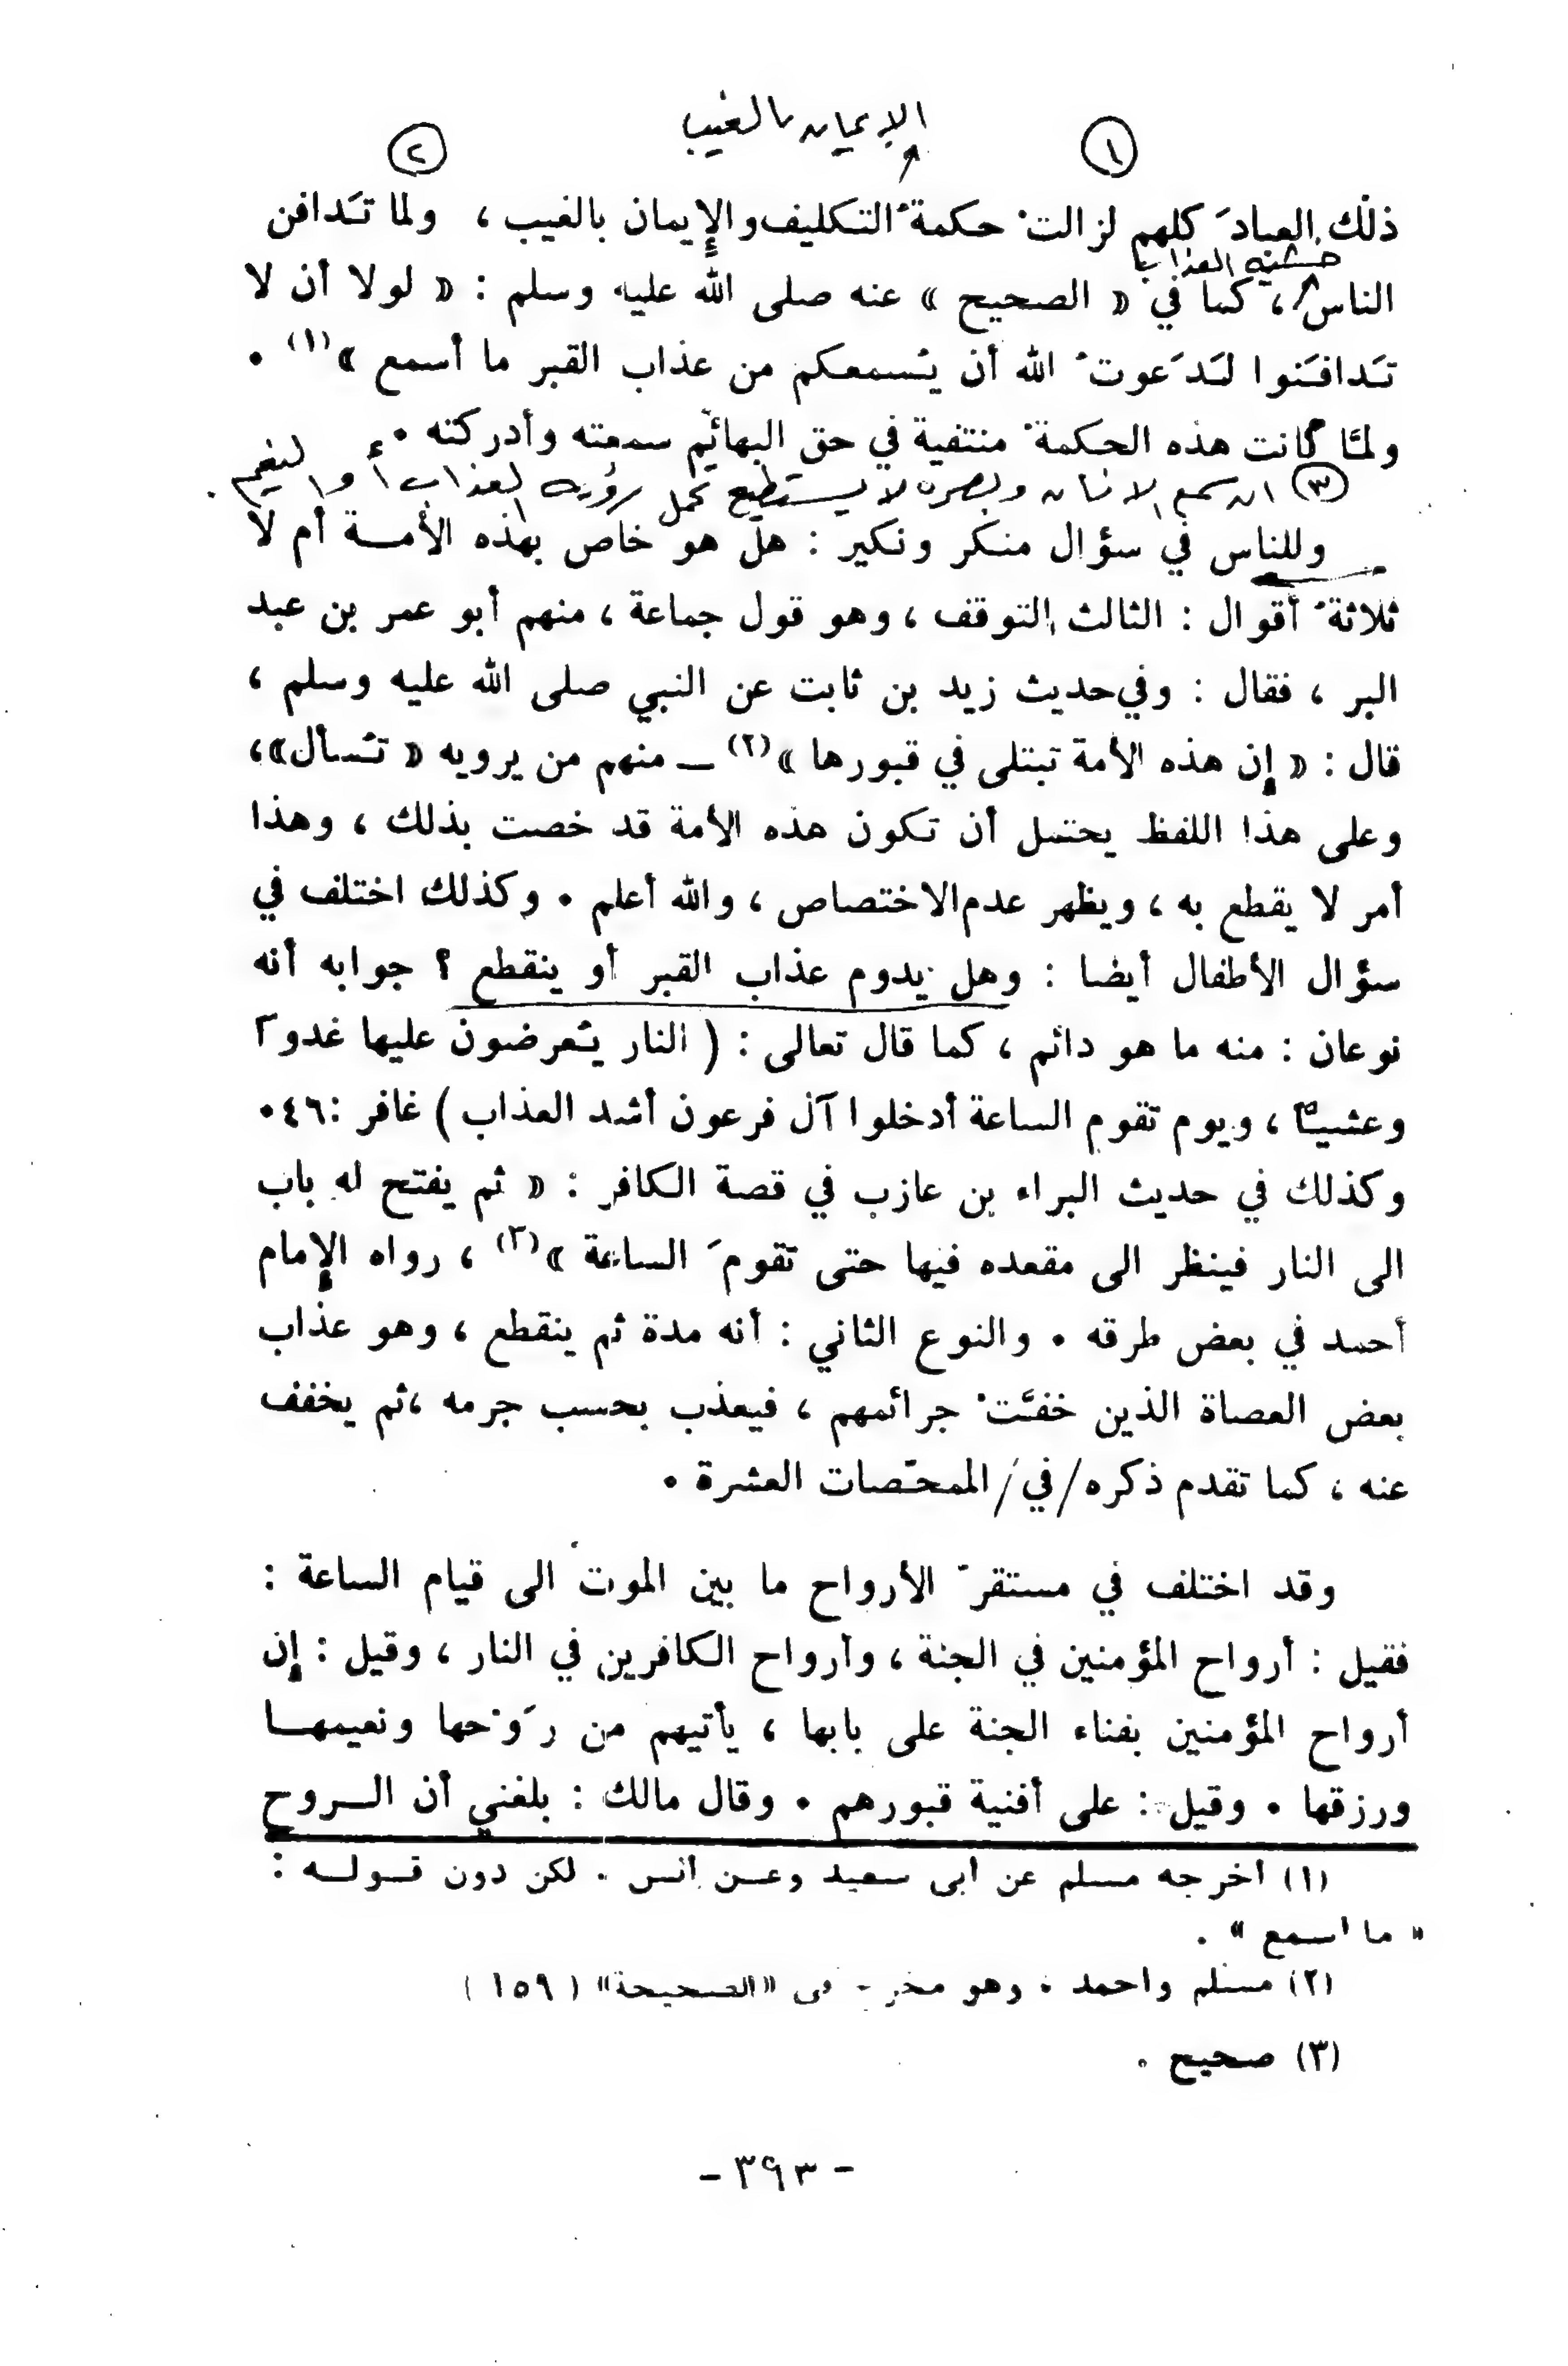 الإيمان بالغيب
١ ٢
ذلك العبادَ كلهم لزالتْ حكمةُ التكليف والإيمان بالغيب ، ولما تَدافن
خشية العذاب
الناس ، كما في « الصحيح » عنه صلى الله عليه وسلم : « لولا أن لا
تَدافَنوا لَدَعوتُ الله أن يُسمعكم من عذاب القبر ما أسمع »(١) .
ولمّا كانت هذه الحكمةُ منتفية في حق البهائم سمعته وأدركته .
(٣) ان سمع الانسان وبصره لا يستطيع تحمل رؤية العذاب أو النعيم .
وللناس في سؤال منكر ونكير : هل هو خاص بهذه الأمــة أم لا
ثلاثةُ أقوال : الثالث التوقف ، وهو قول جماعة ، منهم أبو عمر بن عبد
البر ، فقال : وفي حديث زيد بن ثابت عن النبي صلى الله عليه وسلم ،
قال : « إن هذه الأمة تبتلى في قبورها »(٢) ــ منهم من يرويه « تُسأل»،
وعلى هذا اللفظ يحتمل أن تكون هذه الأمة قد خصت بذلك ، وهذا
أمر لا يقطع به ، ويظهر عدم الاختصاص ، والله أعلم . وكذلك اختلف في
سؤال الأطفال أيضا : وهل يدوم عذاب القبر أو ينقطع ؟ جوابه أنه
نوعان : منه ما هو دائم ، كما قال تعالى : ( النار يُعرضون عليها غدوآ
وعشيّاً ، ويوم تقوم الساعة أدخلوا آل فرعون أشد العذاب ) غافر :٤٦ .
وكذلك في حديث البراء بن عازب في قصة الكافر : « ثم يفتح له باب
الى النار فينظر الى مقعده فيها حتى تقومَ الساعة »(٣) ، رواه الإمام
أحمد في بعض طرقه . والنوع الثاني : أنه مدة ثم ينقطع ، وهو عذاب
بعض العصاة الذين خفَّتْ جرائمهم ، فيعذب بحسب جرمه ،ثم يخفف
عنه ، كما تقدم ذكره/في/الممحّصات العشرة .
وقد اختلف في مستقرّ الأرواح ما بين الموت الى قيام الساعة :
فقيل : أرواح المؤمنين في الجنة ، وأرواح الكافرين في النار ، وقيل : إن
أرواح المؤمنين بفناء الجنة على بابها ، يأتيهم من رَوْحها ونعيمهــا
ورزقها . وقيل : على أفنية قبورهم . وقال مالك : بلغني أن الــروح
(١) أخرجه مسلم عن أبى سعيد وعــن أنس . لكن دون قــولــه :
« ما اسمع » .
(٢) مسلم واحمد ، وهو مخرج في «الصحيحة» ( ١٥٩ )
(٣) صحيح .
- ٣٩٣ -